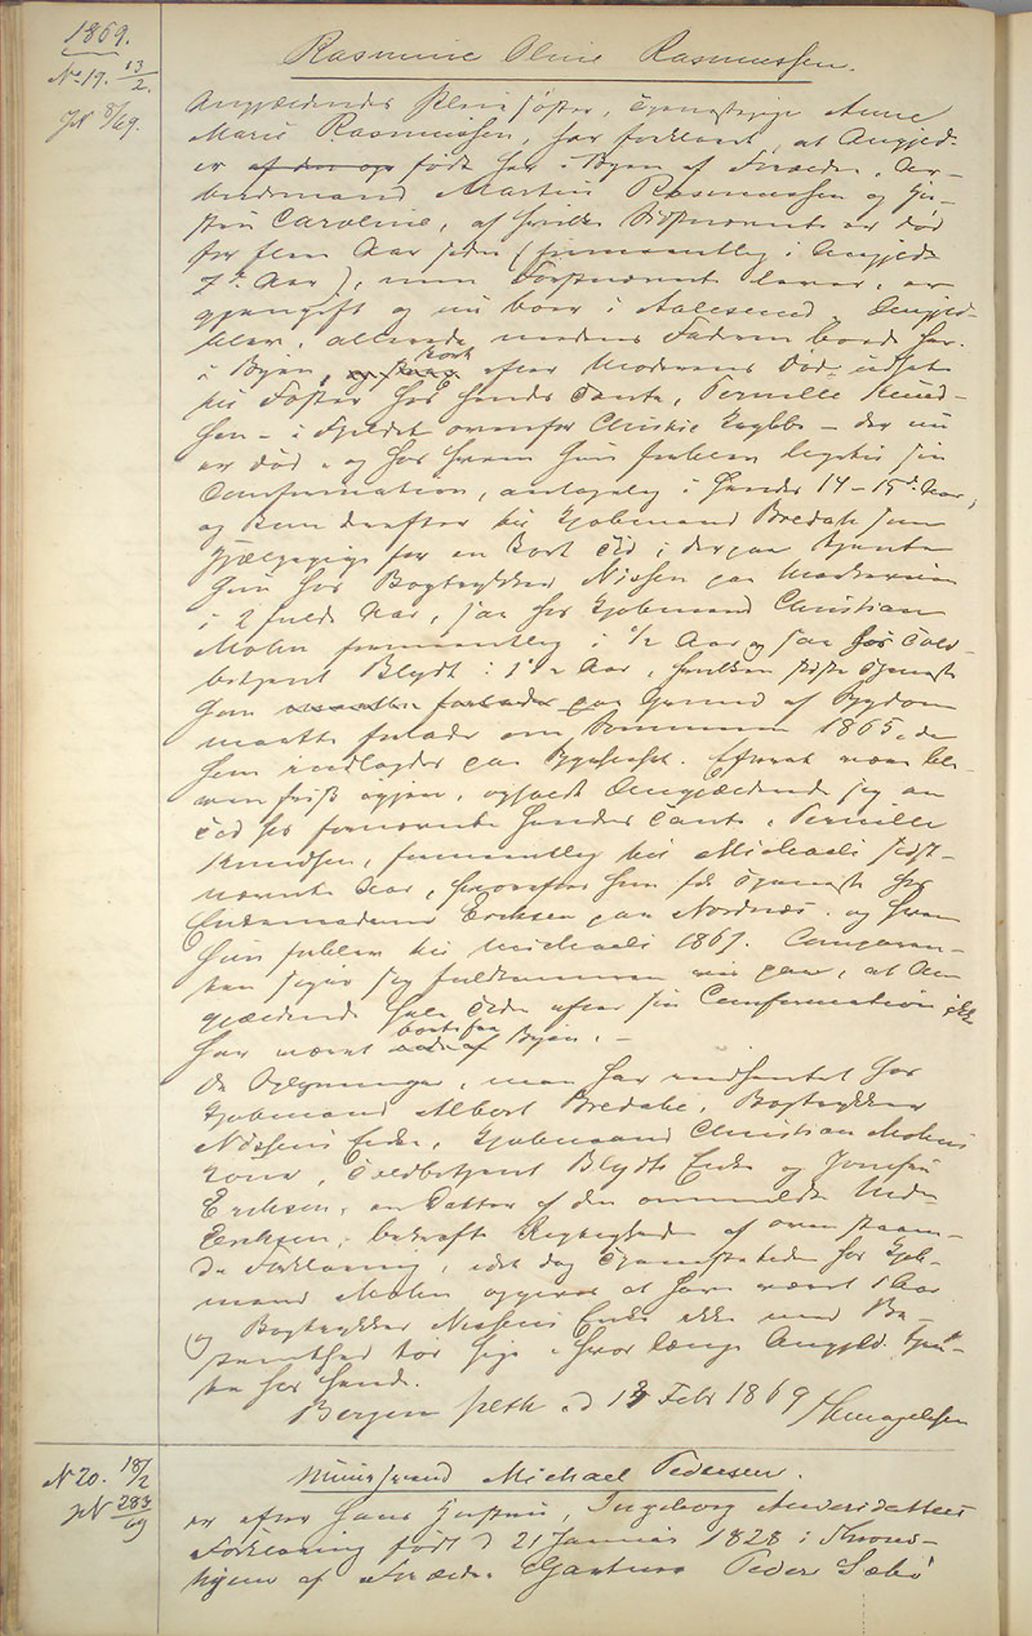 1869.
No 19. 13/2.
JN 8/69.
Rasmine Oline Rasmussen.
Angjældendes Søster, Tjenestepige Anne
Marie Rasmussen, har forklaret, at Angjæld.
er af den og født her i Byen af Forældre, Ar-
beidsmand Martin Rasmussen og Hu-
stru Caroline, af hvilke Sidstnævnte er død
for flere Aar siden (formeentlig i Angjælds
7de Aar), men Førstnævnte lever, er
gjengift og nu boer i Aalesund. Angjæld.
blev, allerede medens Faderen boede her
i Byen, kort efter Moderens Død udsat
til Foster hos hendes Tante, Pernille Knud-
sen - i Fjeldet ovenfor Christie Krybbe - der nu
er død, og hos hvem hun forblev ligetil sin
Confirmation, antagelig i hendes 14-15de Aar,
og kom derefter til Kjøbmand Bredah som
Hjælpepige for en kort Tid; derpaa tjente
hun hos Bogtrykker Nissen paa Markeveien
i 2 fulde Aar, saa hos Kjøbmand Christian
Mohn formeentlig i 1/2 Aar og saa hos Told-
betjent Blydt i 1 1/2 Aar, hvilken sidste Tjeneste
hun maatte forlade paa Grund af Sygdom
maatte forlade om Sommeren 1865, da
hun indlagdes paa Sygehuset. Efterat være ble-
ven frisk igjen, opholdt Angjældende sig en
Tid hos fornævnte hendes Tante, Pernille
Knudsen, formeentlig til Michaeli sidst-
nævnte Aar, hvorefter hun fik Tjeneste hos
Enkemadame Eriksen paa Nordnæs, og hvor
hun forblev til Michaeli 1867. Comparen-
ten siger sig fuldkommen vis paa, at An-
gjældende hele Tiden efter sin Confirmation ikke
har været borte fra Byen. -
De Oplysninger, man har indhentet hos
Kjøbmand Albert Bredahl, Bogtrykker
Nissens Enke, Kjøbmand Christian Mohns
Kone, Toldbetjent Blydts Enke og Jomfru
Eriksen, en Datter af den ommeldte Mad.
Eriksen, bekræfte Rigtigheden af ovenstaaen-
de Forklaring, idet dog Tjenestetiden hos Kjøb-
mand Mohn opgives at have været 1 Aar
og Bogtrykker Nissens Enke ikke med Be-
stemthed tør sige, hvor længe Angjæld. tjen-
te hos hende.
Bergen d 13 Febr 1869
N 20. 18/2
JN 283/69
Michael Pedersen.
er efter hans Hustru, Ingeborg Andersdatters
Forklaring født d 21 Januar 1828 i Thrond-
hjem af Forældre Gartner Peder Sæbø